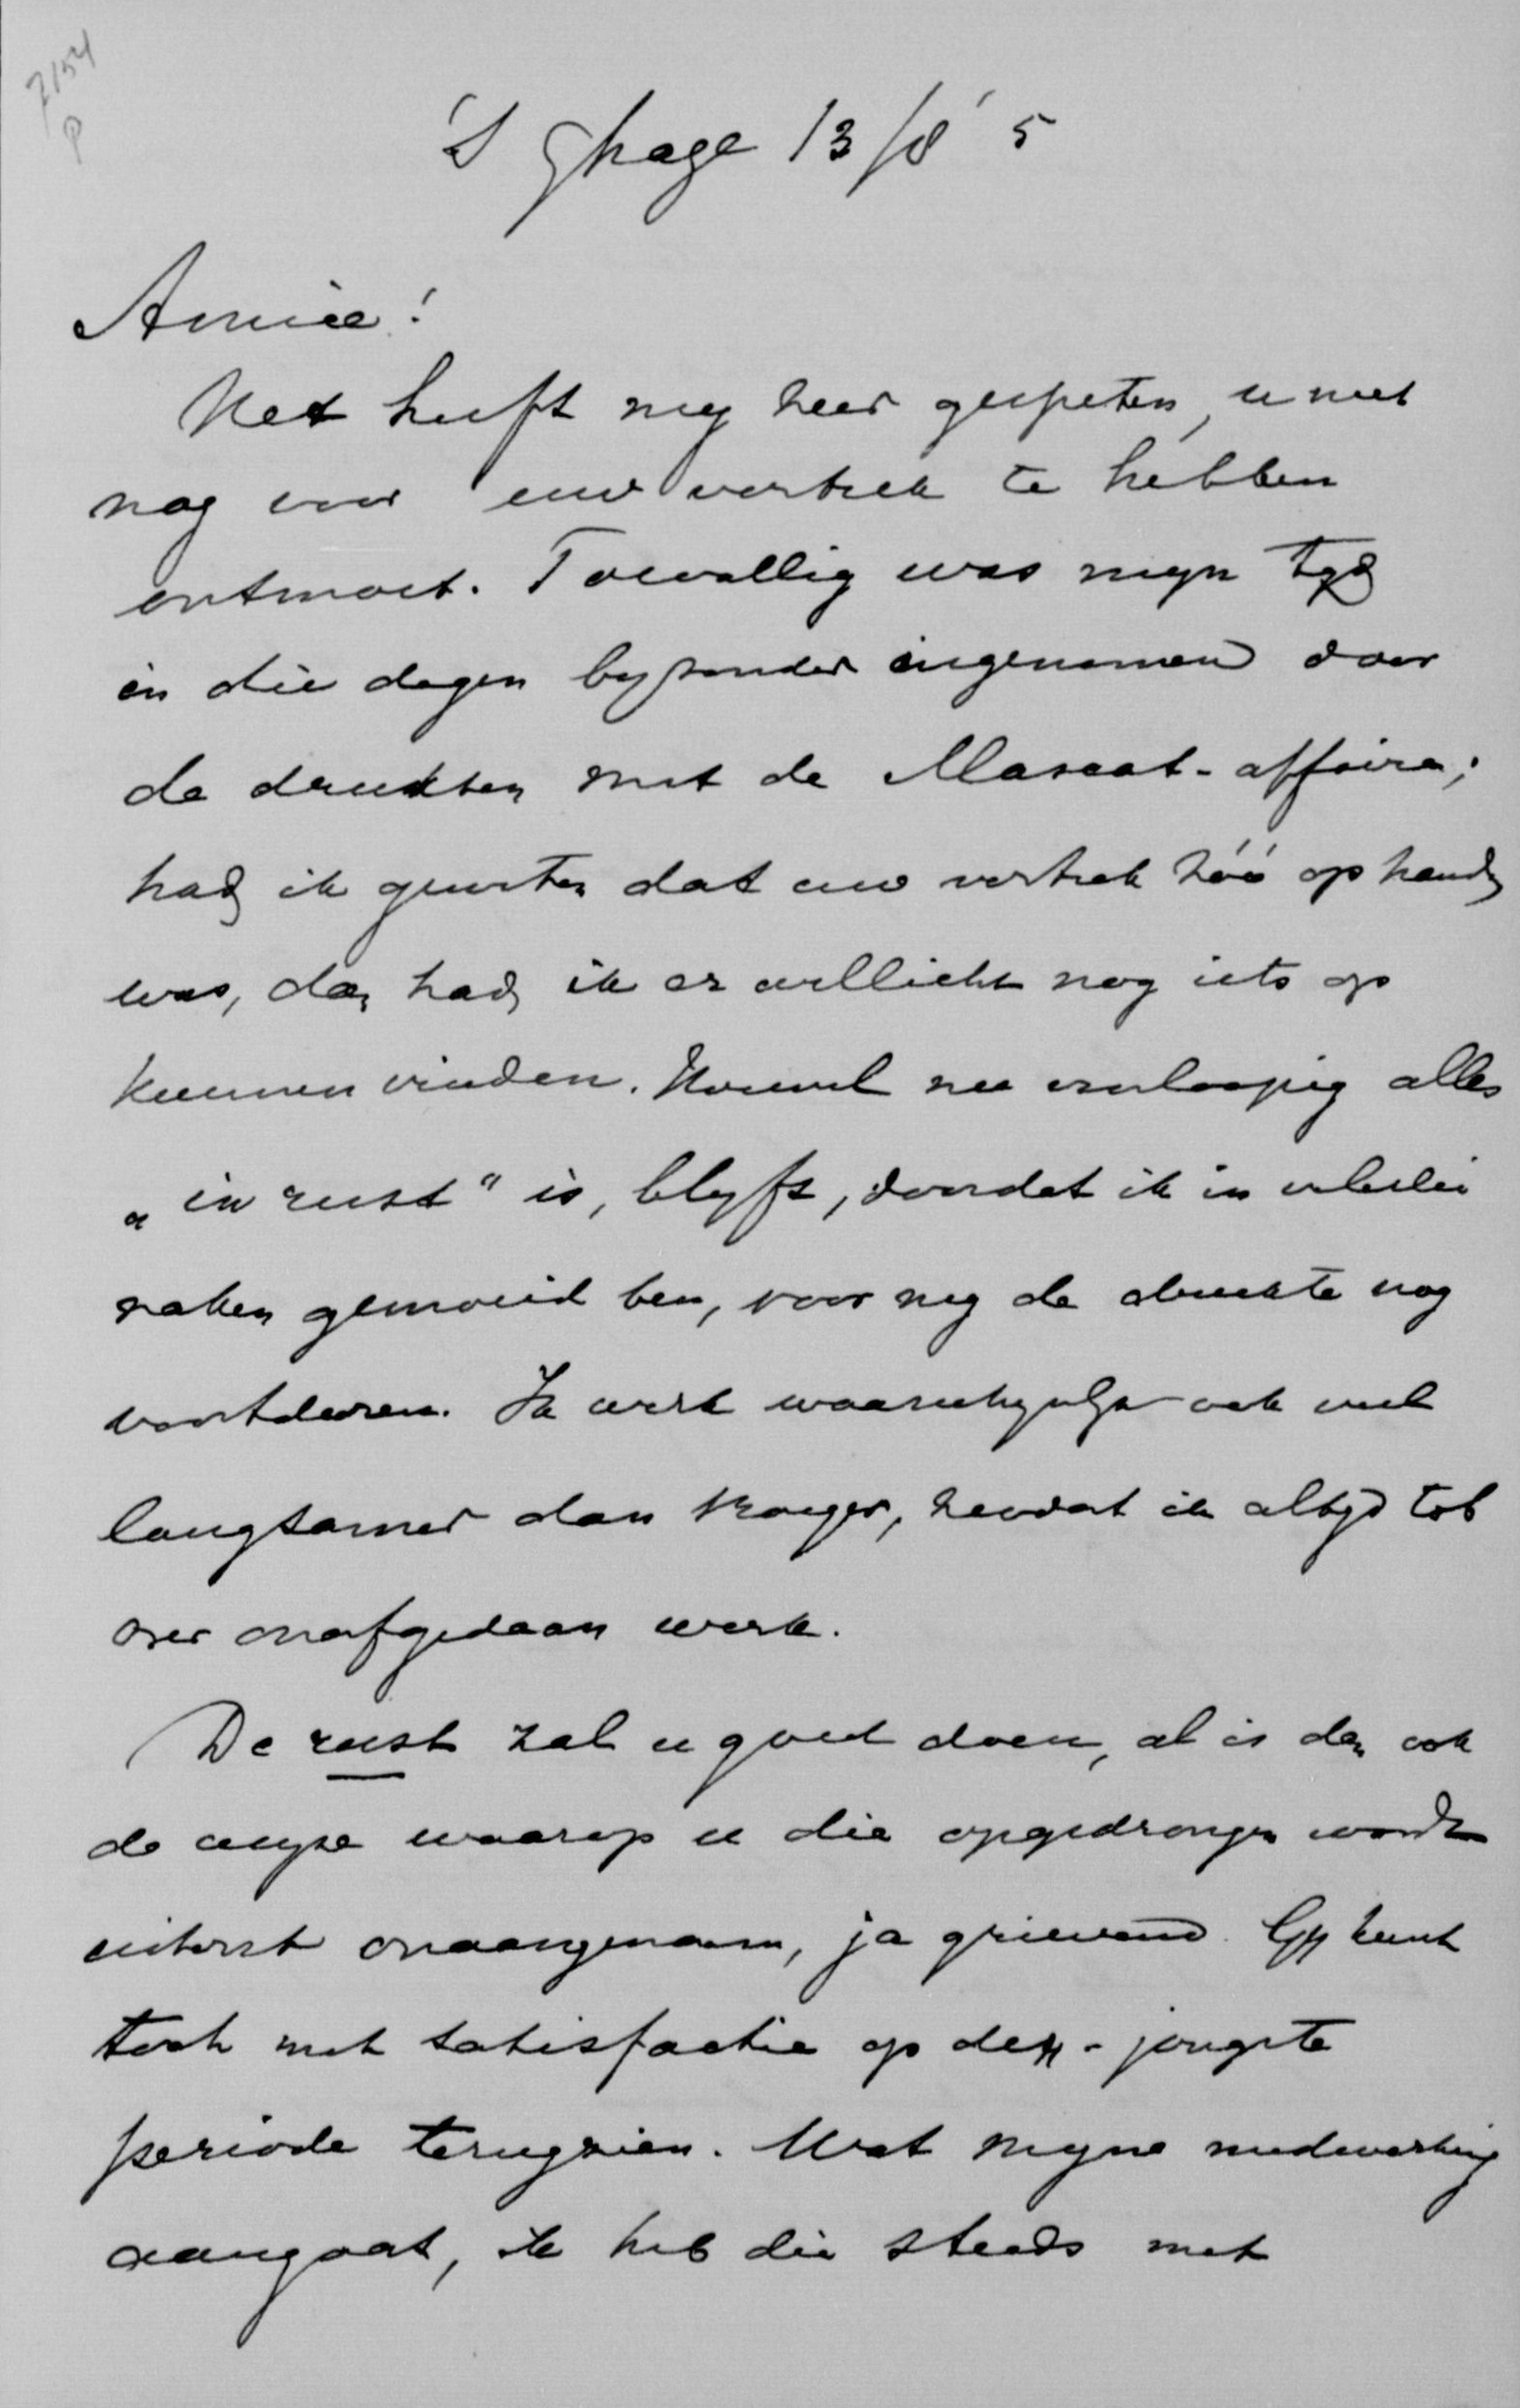 7154
P
'S Ghage 13/8 '5
Amice!
Het heeft my zeer gespeten, u niet
nog voor uw vertrek te hebben
ontmoet. Toevallig was myn tyd
in die dagen byzonder ingenomen door
de drukten met de Mascat-affaire;
had ik geweten dat uw vertrek zóó op handen
was, dan had ik er wellicht nog iets op
kunnen vinden. Hoewel nu voorloopig alles
„in rust" is, blyft, doordat ik in velerlei
zaken gemoeid ben, voor my de drukte nog
voortduren. Ik werk waarschynlyk ook veel
langzamer dan vroeger, zoodat ik altyd tob
over onafgedaan werk.
De rust zal u goed doen, al is dan ook
de wyze waarop u die opgedrongen wordt
uiterst onaangenaam, ja grievend. Gy kunt
toch met satisfactie op dezen jongste
periode terugzien. Wat myne medewerking
aangaat, ik heb die steeds met